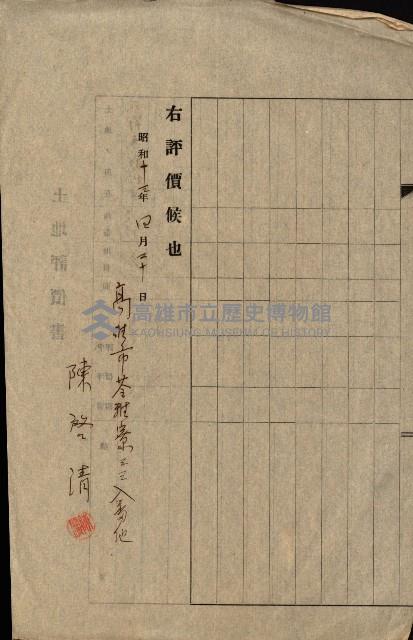 右評價候也
昭和十二年四月二十日
高雄市苓雅寮三三八番地
陳啓清
土地評價書
高雄市立歷史博物館
KAOHSIUNG MUSEUM OF HISTORY